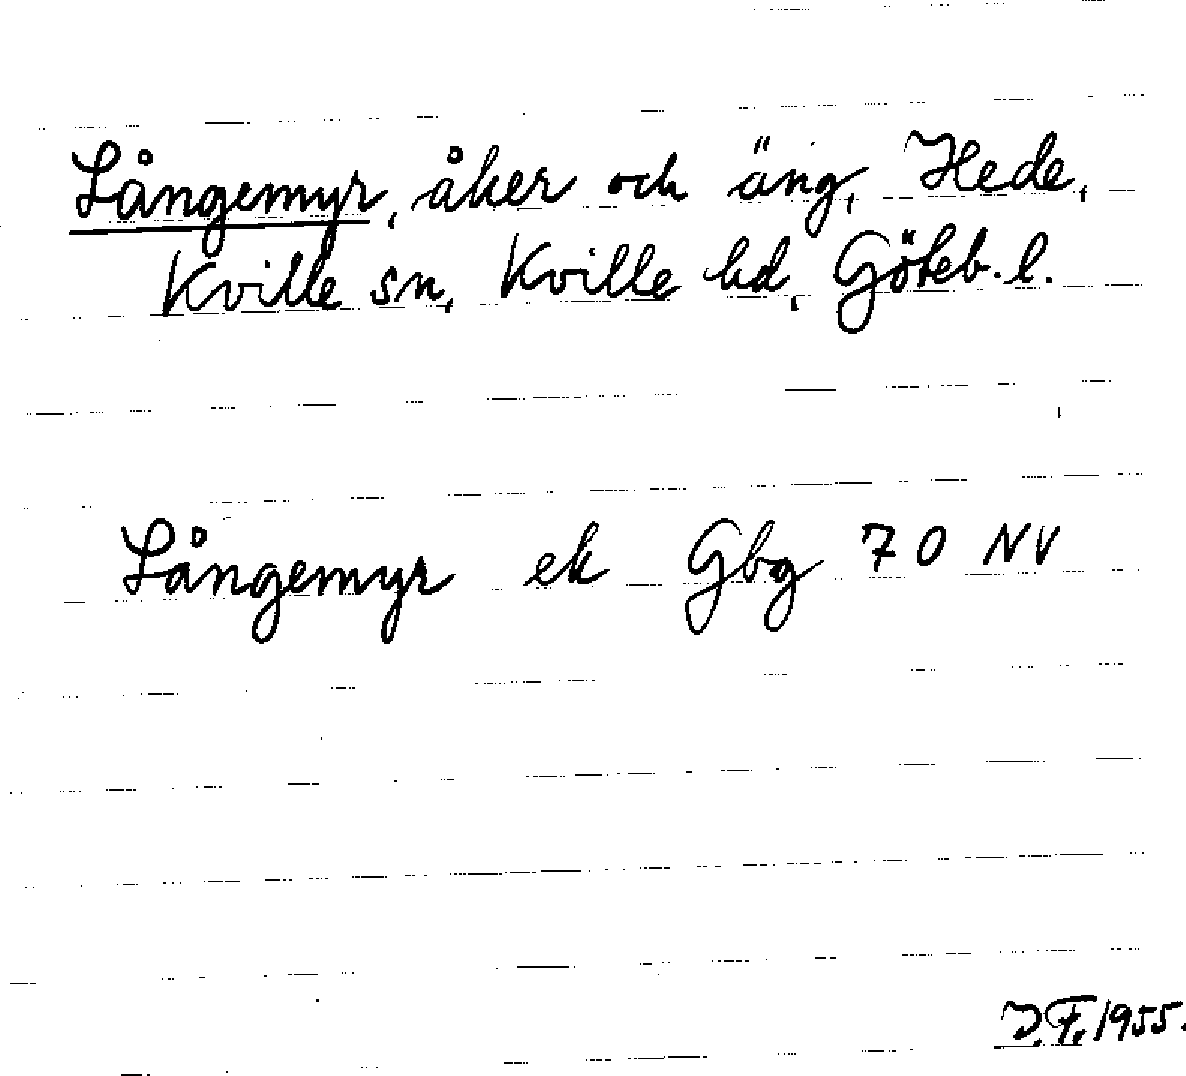 Långemyr, åker och äng, Hede,
Kville sn, Kville hd, Göteb. l.
Långemyr ek Gbg 70 NV
J.F. 1955.